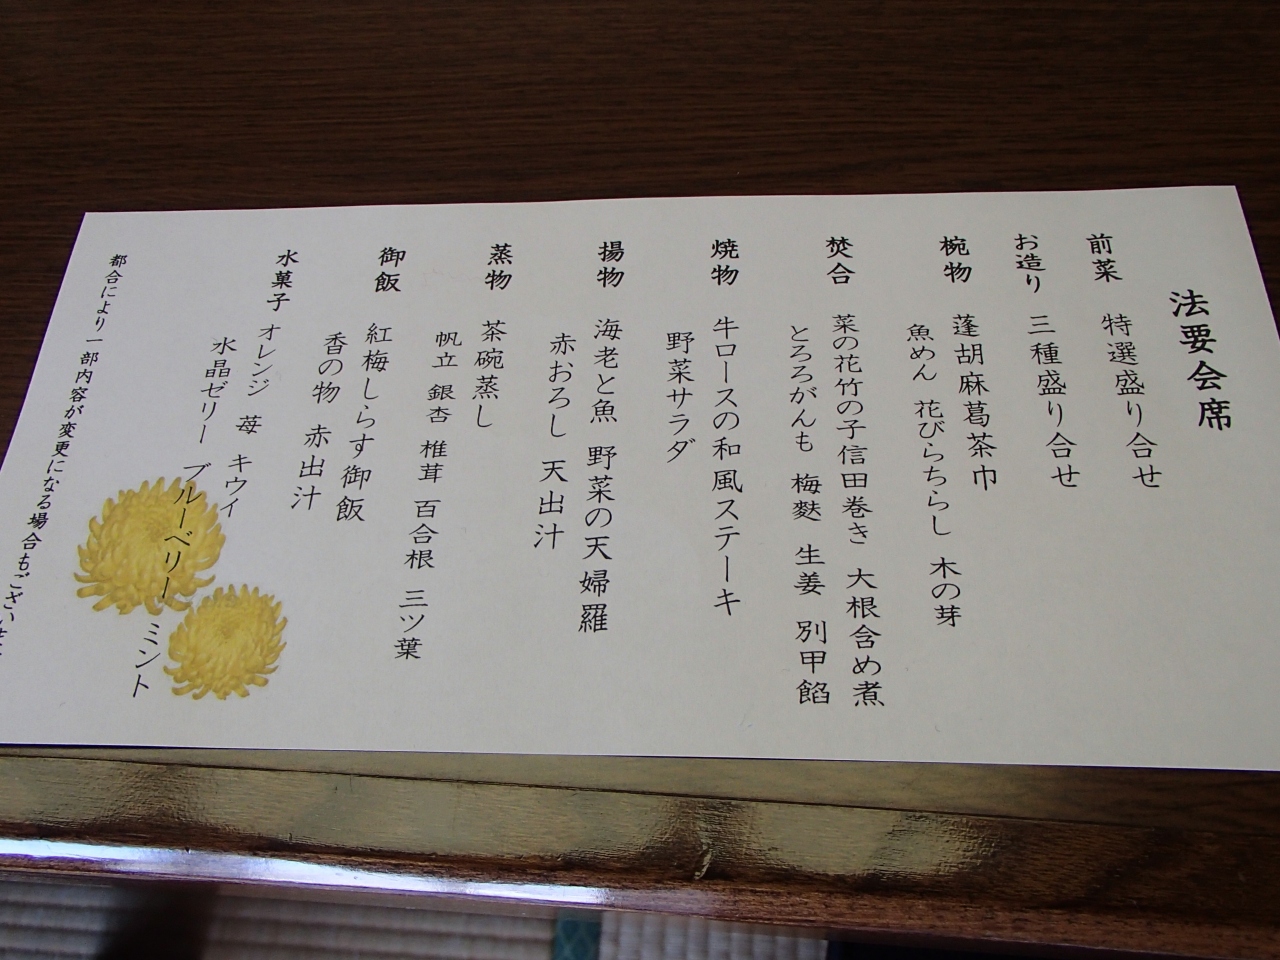 法要会席
前菜　特選盛り合せ
お造り　三種盛り合せ
椀物　蓬胡麻葛茶巾
魚めん　花びらちらし　木の芽
焚合　菜の花竹の子信田巻き　大根含め煮
とろろがんも　梅麩　生姜　別甲餡
焼物　牛ロースの和風ステーキ
野菜サラダ
揚物　海老と魚　野菜の天婦羅
赤おろし　天出汁
蒸物　茶碗蒸し
帆立　銀杏　椎茸　百合根　三ツ葉
御飯　紅梅しらす御飯
香の物　赤出汁
水菓子　オレンジ　苺　キウイ
水晶ゼリー　ブルーベリー　ミント
都合により一部内容が変更になる場合もござい